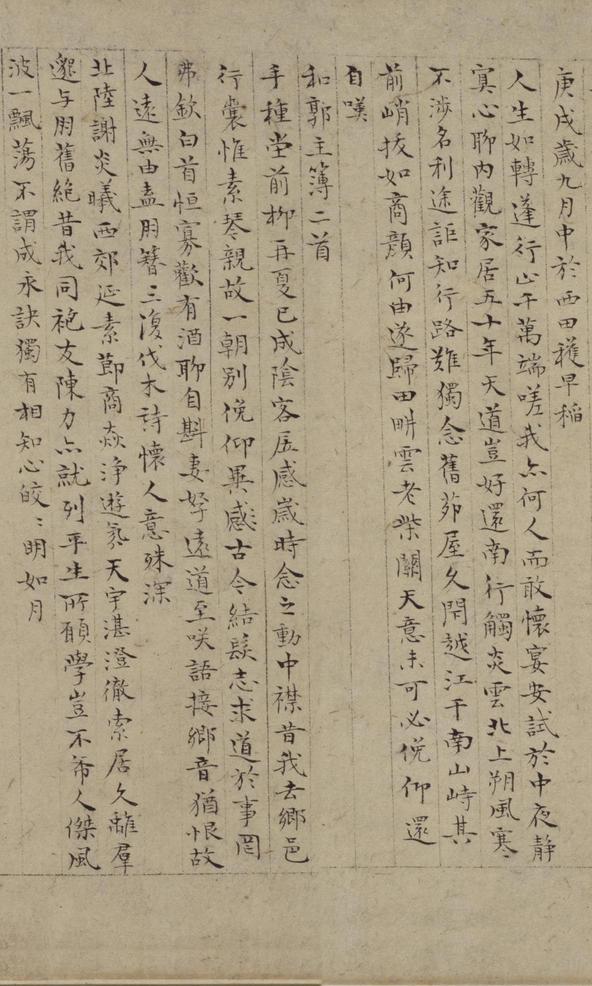 庚戌歲九月中於西田穫早稻
人生如轉蓬行止千萬端嗟我亦何人而敢懷宴安試於中夜靜
寞心聊內觀家居五十年天道豈好還南行觸炎雲北上朔風寒
不涉名利途詎知行路難獨念舊茆屋久閉越江干南山峙其
前峭拔如商顏何由遂歸田畊雲老柴關天意未可必俛仰還
自嘆
和郭主簿二首
手種堂前柳再夏已成陰客居感歲時念之動中襟昔我去鄉邑
行囊惟素琴親故一朝別俛仰異感古今結髮志求道於事罔
弗欽白首恒寡歡有酒聊自斟妻孥遠道至咲語接鄉音猶恨故
人遠無由盍朋簪三復伐木詩懷人意殊深
北陸謝炎曦西郊延素節商猋淨遊氛天宇湛澄徹索居久離羣
邈与朋舊絕昔我同袍友陳力亦就列平生所願學豈不希人傑風
波一飄蕩不謂成永訣獨有相知心皎〻明如月